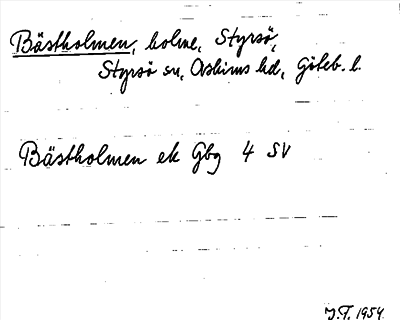 Bästholmen, holme, Styrsö,
Styrsö sn, Askims hd, Göteb. l.
Bästholmen ek Gbg 4 SV
J.F. 1954